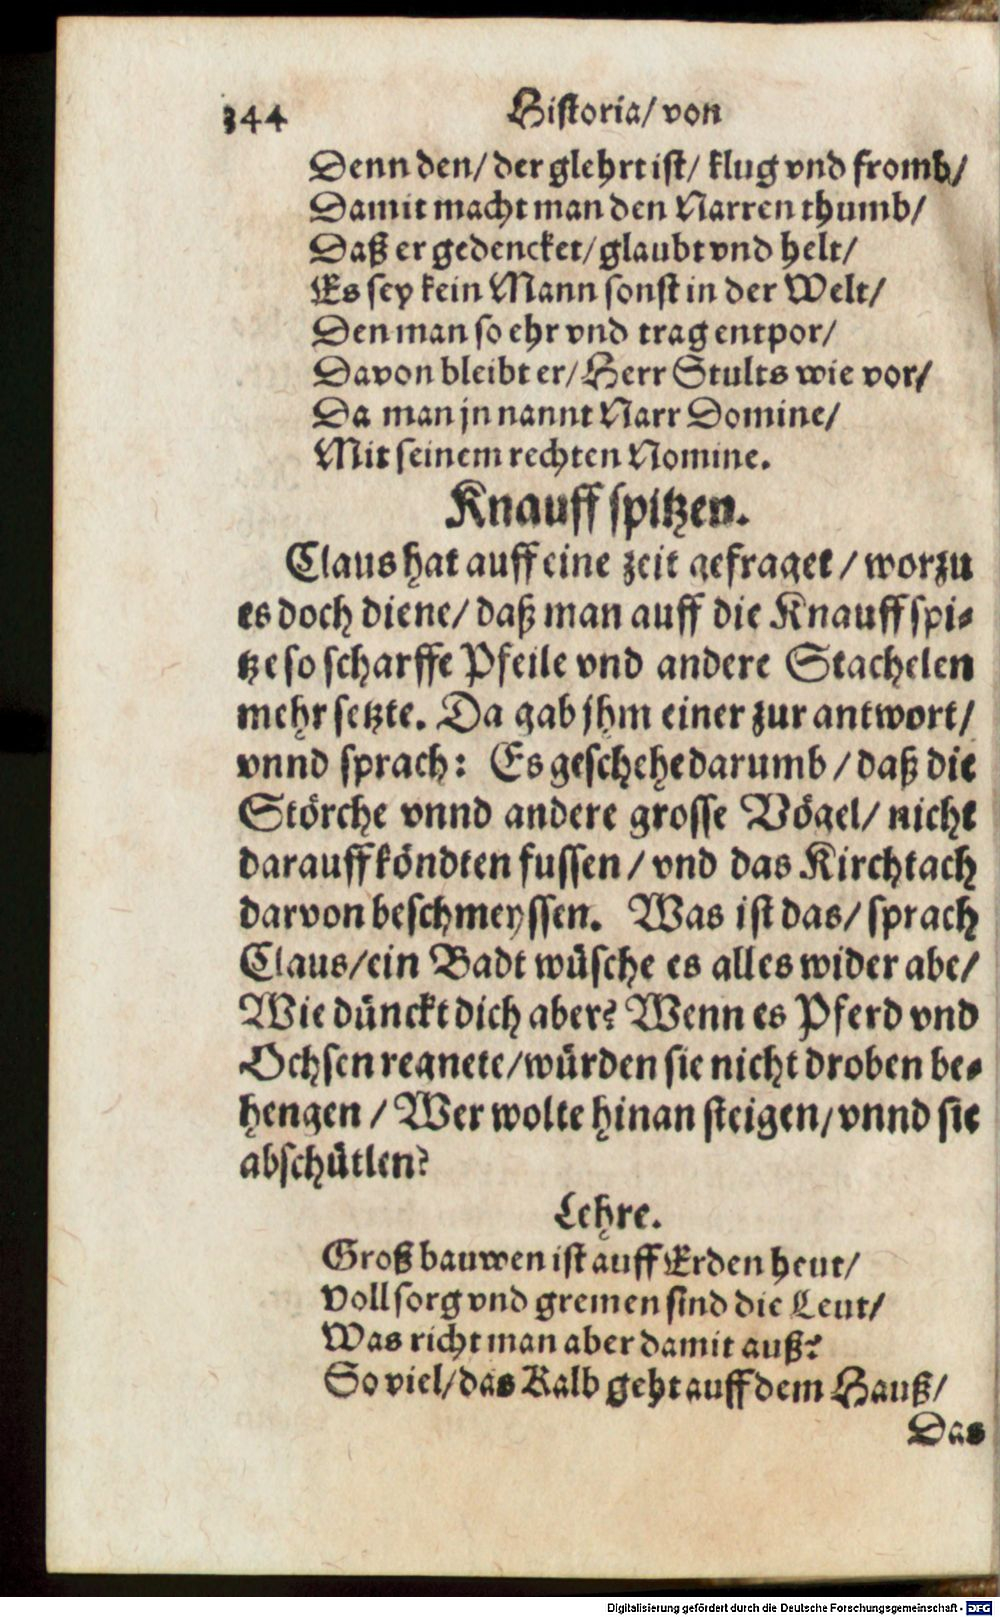 344 Historia/ von
Denn den/ der glehrt ist/ klug vnd fromb/
Damit macht man den Narren thumb/
Daß er gedencket/ glaubt vnd helt/
Es sey kein Mann sonst in der Welt/
Den man so ehr vnd trag entpor/
Davon bleibt er/ Herr Stults wie vor/
Da man jn nannt Narr Domine/
Mit seinem rechten Nomine.
Knauff spitzen.
Claus hat auff eine zeit gefraget / worzu
es doch diene/ daß man auff die Knauff spi-
tze so scharffe Pfeile vnd andere Stachelen
mehr setzte. Da gab jhm einer zur antwort/
vnnd sprach: Es geschehe darumb / daß die
Störche vnnd andere grosse Vögel/ nicht
darauff köndten fussen / vnd das Kirchtach
darvon beschmeyssen. Was ist das/ sprach
Claus/ ein Badt wüsche es alles wider abe/
Wie dünckt dich aber? Wenn es Pferd vnd
Ochsen regnete/ würden sie nicht droben be-
hengen / Wer wolte hinan steigen/ vnnd sie
abschütlen?
Lehre.
Groß bauwen ist auff Erden heut/
Voll sorg vnd gremen sind die Leut/
Was richt man aber damit auß?
So viel/ das Kalb geht auff dem Hauß/
Das
Digitalisierung gefördert durch die Deutsche Forschungsgemeinschaft - DFG